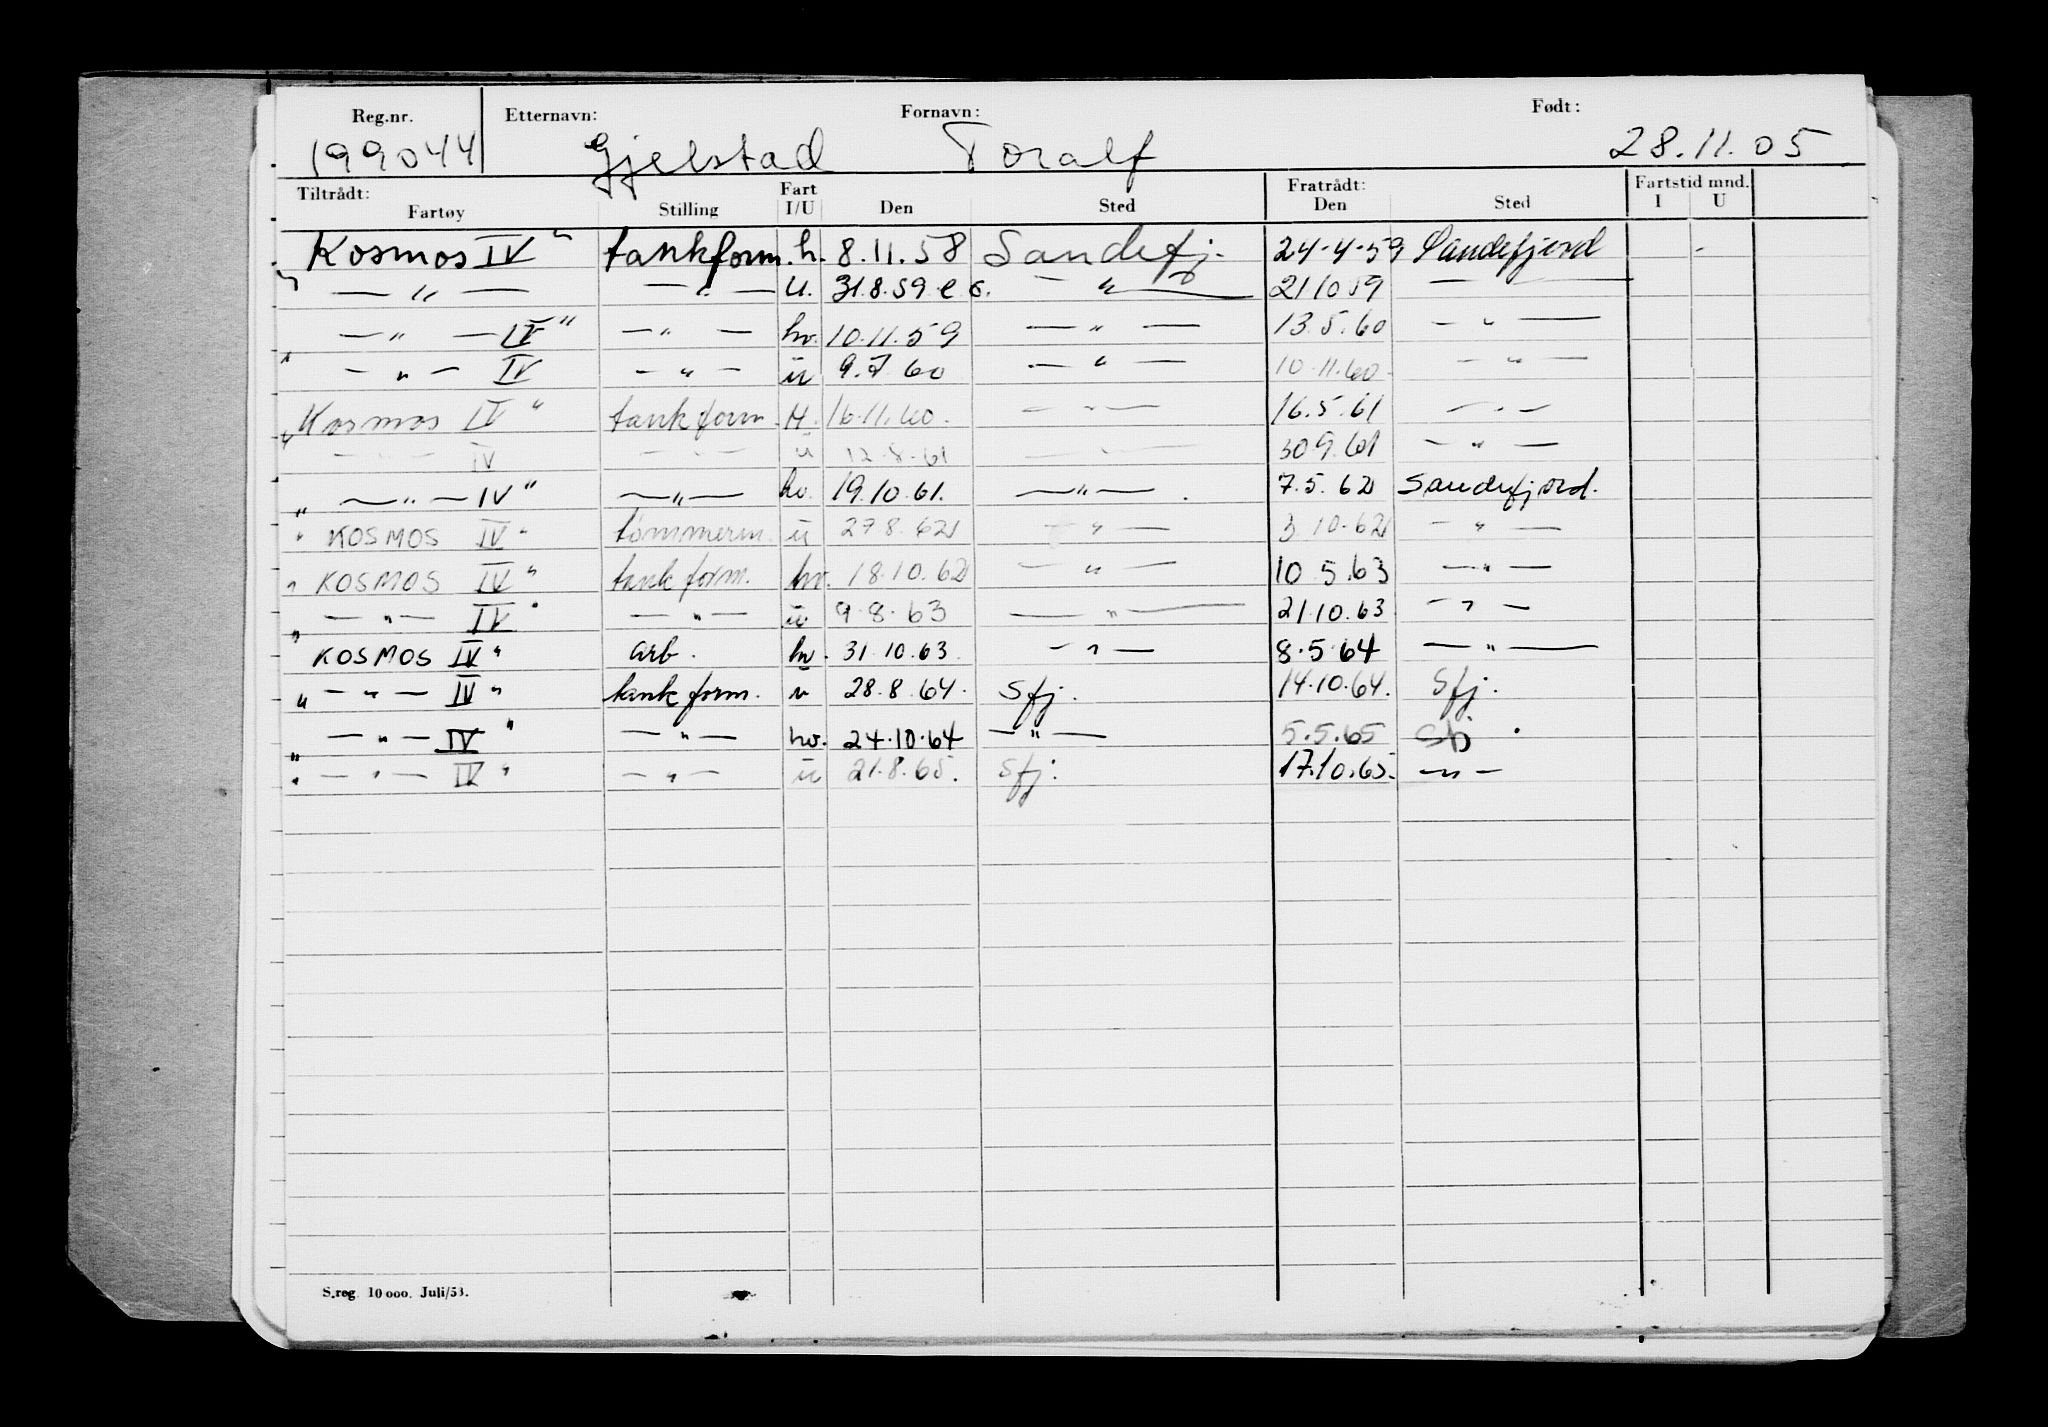 Reg.nr. Etternavn: Fornavn: Født:
199044 Gjelstad Toralf 28.11.05
Tiltrådt: Fart Fratrådt: Fartstid mnd.
Fartøy Stilling I/U Den Sted Den Sted I U
Kosmos IV" tankform. h. 8.11.58 Sandefj. 24-4-59 Sandefjord
" — " — — " — U. 31.8.59 — " — 21 10 59 —
— " — IV" — " — hv. 10.11.59 — " — 13.5.60 — " —
" — " — IV — " — u 9.7 60 — " — 10.11.60 — " —
"Kosmos IV" tankform. H. 16.11.60. — " — 16.5.61 — " —
— " — IV — " — u 12.8.61 — " — 30 9.61 — " —
" — " — IV" — " — hv. 19.10.61. — " — 7.5.62 Sandefjord.
" KOSMOS IV" tømmerm. u 27 8.62 — " — 3 10.62 — " —
" KOSMOS IV" tank form. hv. 18.10.62 — " — 10 5.63 — " —
" — " — IV" — " — u 9.8.63 — " — 21.10.63 — " —
KOSMOS IV" arb. hv. 31.10.63. — " — 8.5.64 — " —
" — " — IV" tank form. u 28.8.64. Sfj. 14.10.64. Sfj.
" — " — IV" — " — hv. 24.10.64 — " — 5.5.65 Sfj.
" — " — IV" — " — u 21.8.65. Sfj. 17.10.65. — " —
S.reg. 10 000. Juli/53.